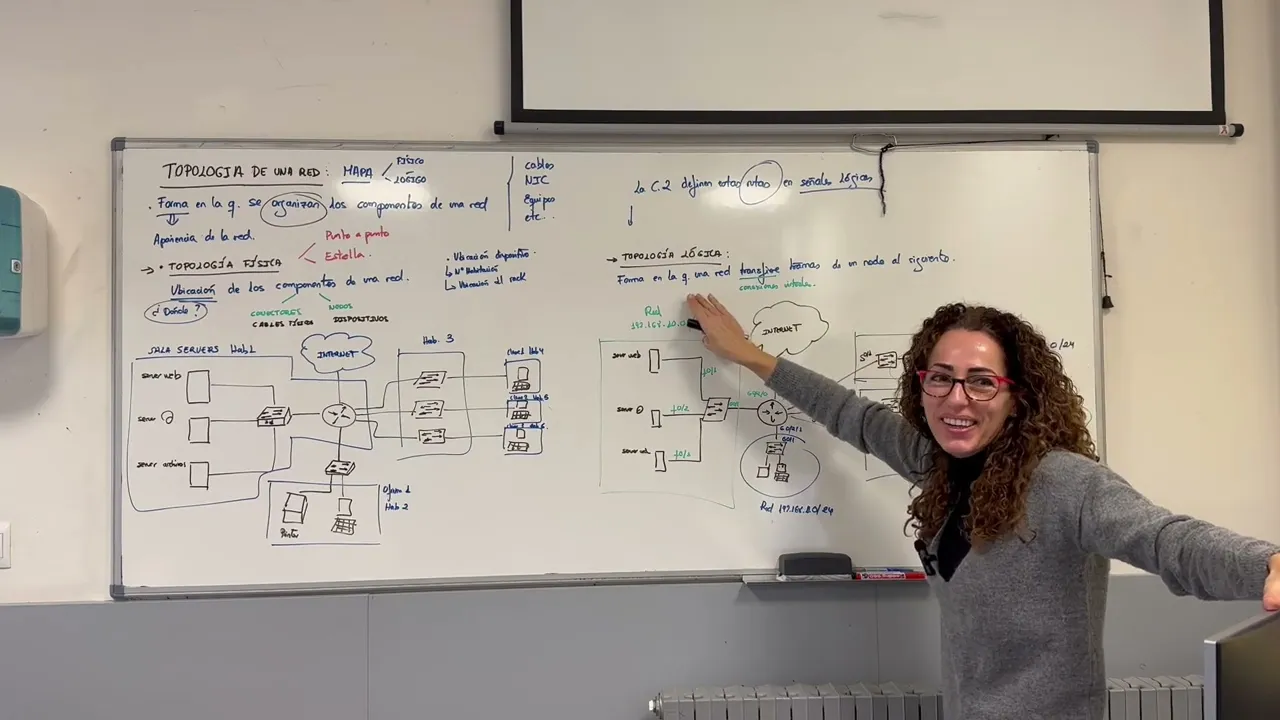 TOPOLOGIA DE UNA RED: MAPA
FÍSICO
LÓGICO
cables
NIC
Equipos
etc..
. Forma en la q. se organizan los componentes de una red
Apariencia de la red.
Punto a punto
Estrella.
→ • TOPOLOGÍA FÍSICA
Ubicación de los componentes de una red.
¿Dónde?
CONECTORES
CABLES FÍSICA
NODOS
DISPOSITIVOS
. Ubicación dispositivo.
↳ Nº Habitación
↳ Ubicación el rack
SALA SERVERS Hab1
server web
server @
server archivos
INTERNET
Hab. 3
clase1 Hab4
Hab 2
La C.2 definen estas rutas en señales lógicas
→ TOPOLOGÍA LÓGICA:
Forma en la q. una red transfiere tramas de un nodo al siguiente.
conexiones virtuales.
Red
INTERNET
0/24
server web
server @
f0/1
f0/2
G0/1
Red 192.168.